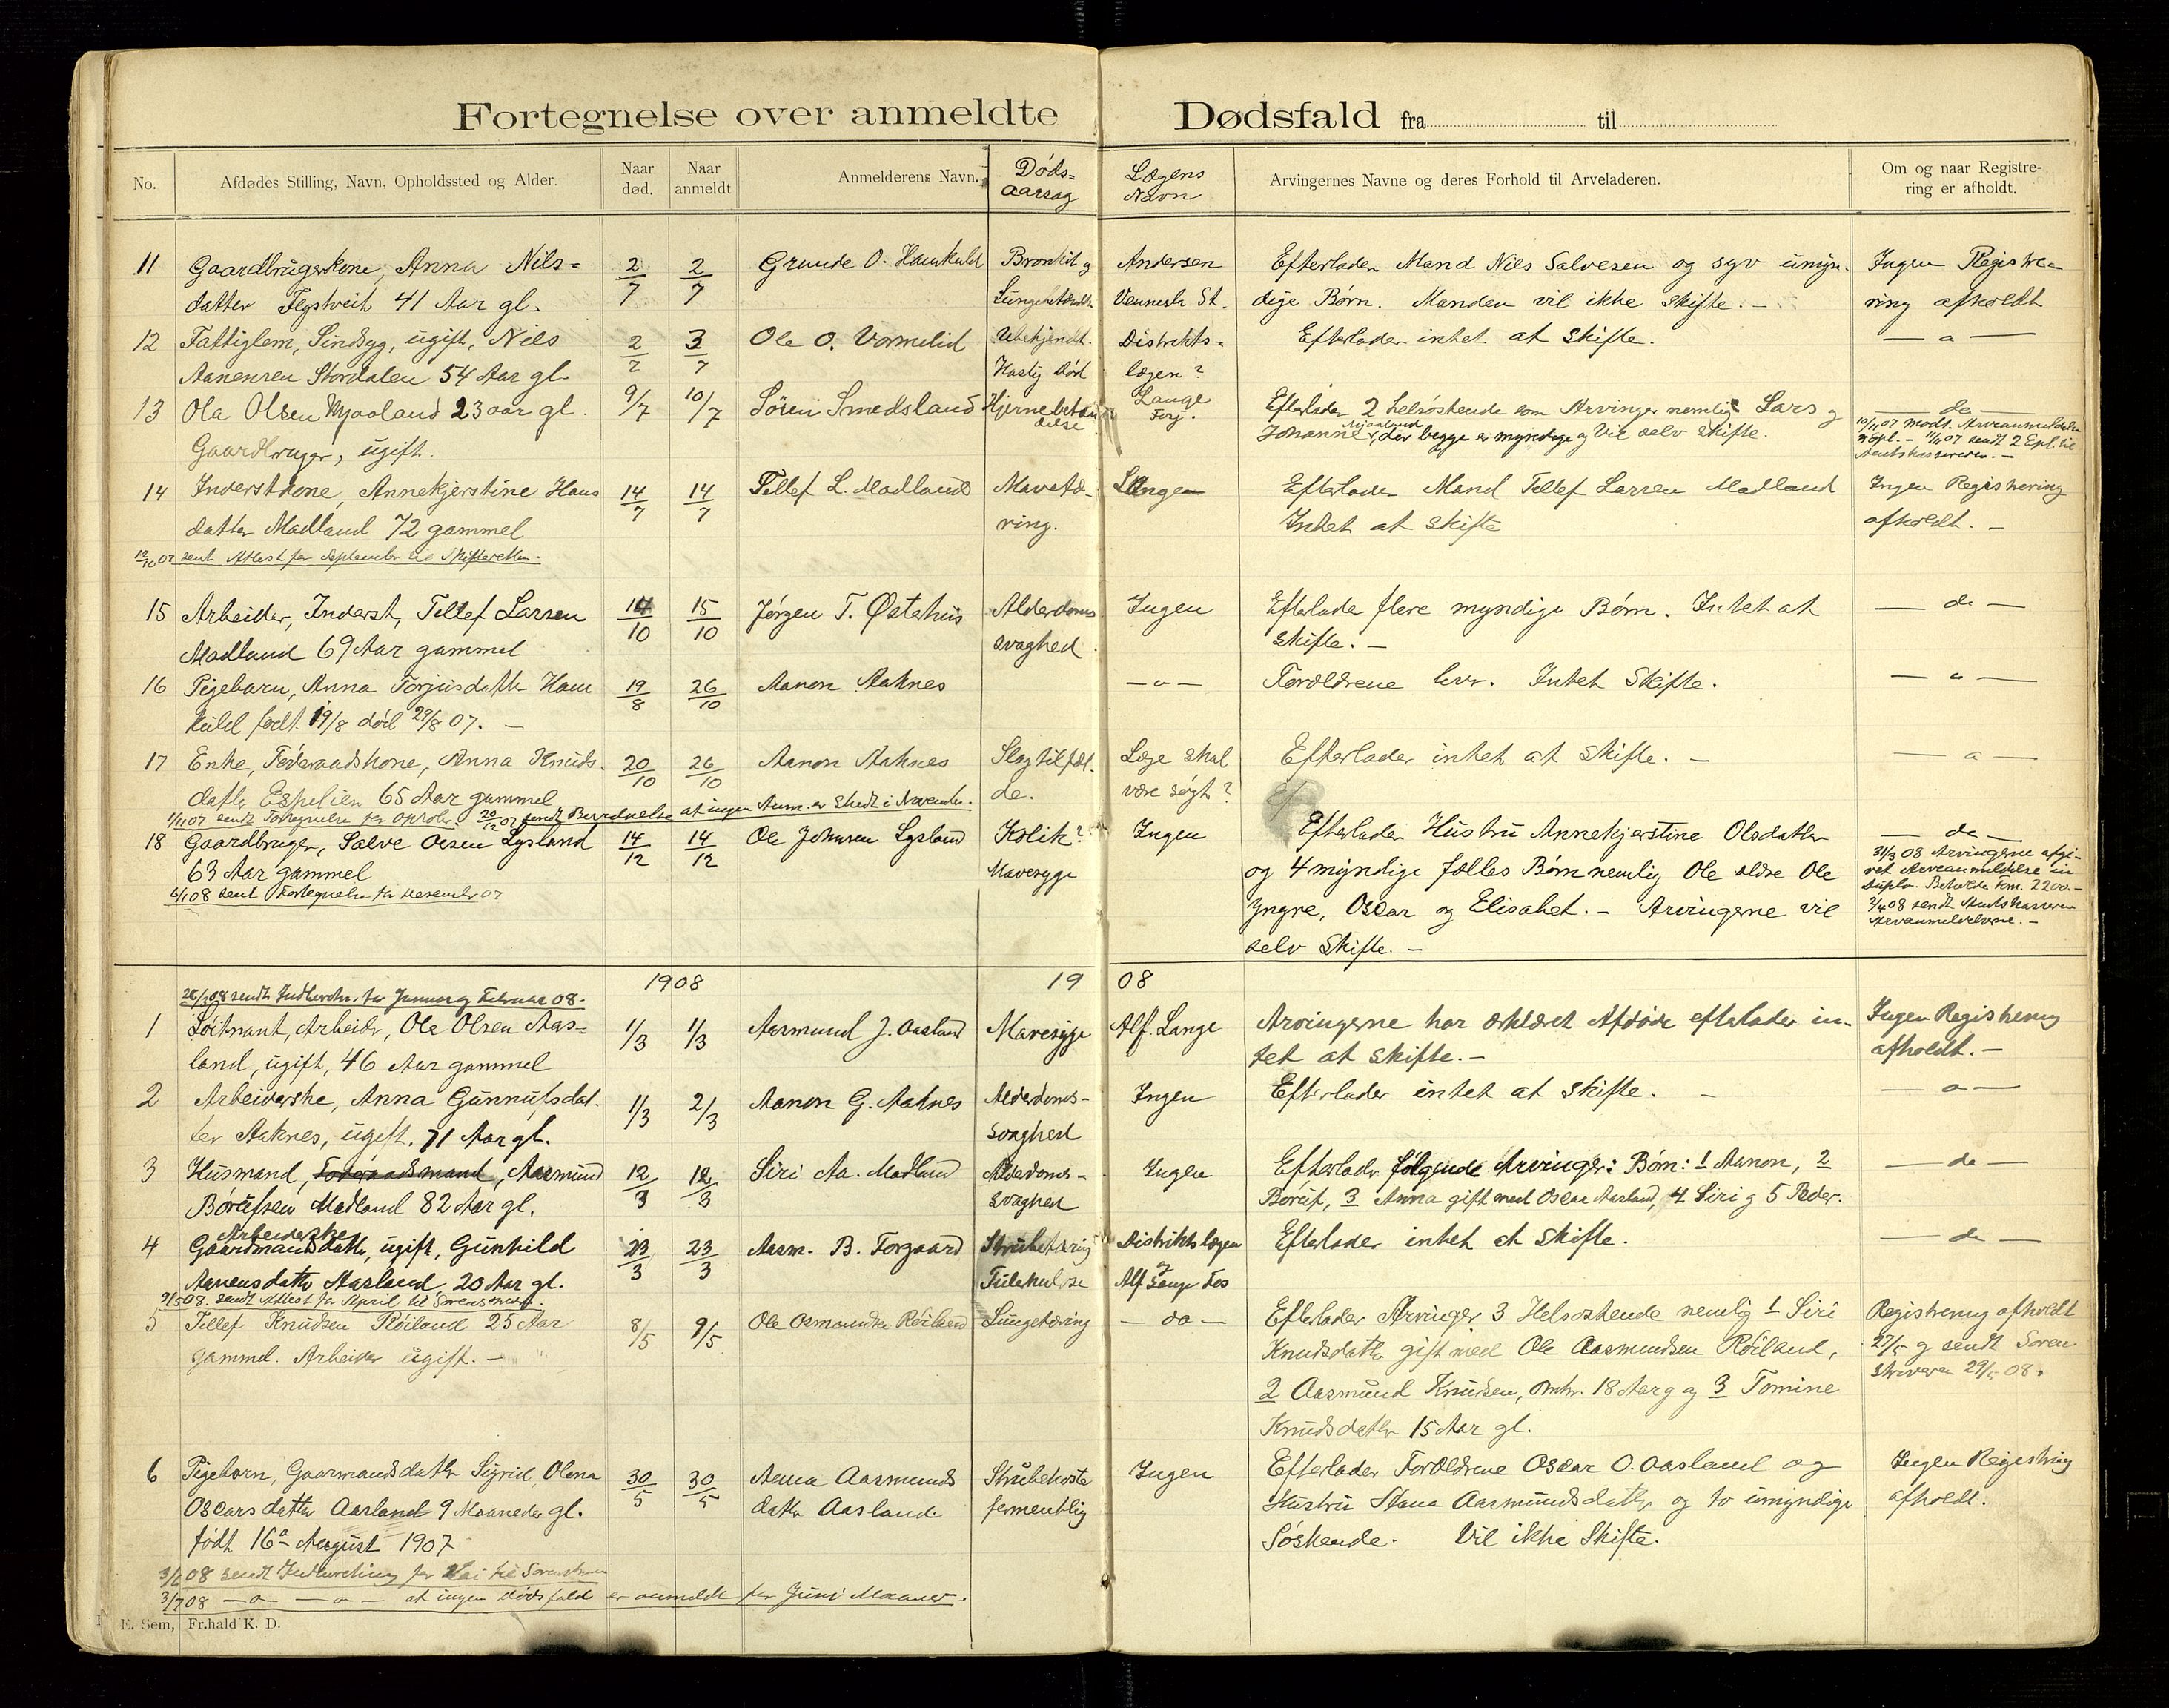 Fortegnelse over anmeldte Dødsfald fra til
No. Afdødes Stilling, Navn, Opholdssted og Alder. Naar død. Naar anmeldt Anmelderens Navn. Døds= Aarsag Lægens Navn Arvingernes Navne og deres Forhold til Arveladeren. Om og naar Registrering er afholdt.
11 Gaardbrugerkone, Anna Nils= 2/7 2/7 Grunde O. Haukuld Bronkit og Andersen Efterlader Mand Nils Salvesen og syv umyn- Ingen Registre-
datter 41 Aar gl. Vennesla St. dige Børn. Manden vil ikke skifte. - ring afholdt
12 Fattiglem, Sindsyg, ugift, Nils 2/7 3/7 Ole O. Vormelid Ubekjendt. Distrikts- Efterlader intet at skifte. — " —
Aanensen Stordalen 54 Aar gl. Hastig Død lægen?
13 Ola Olsen Mjaaland 23 aar gl. 9/7 10/7 Søren Smedsland Hjernebetæn- Lange Efterlader 2 helsøskende som Arvinger nemlig Lars og — do —
delse Torj. Johanne Mjaaland, der begge er myndige og vil selv skifte. 10/11 07 modt. Arveanmeldelse
Gaardbruger, ugift. 11/11 07 sendt 2 Expl. til
Amtskassereren. -
14 Inderstkone, Annekjerstine Hans 14/7 14/7 Tellef L. Madland Mavetæ- Ingen Efterlader Mand Tellef Larsen Madland Ingen Registrering
datter Madland 72 gammel ring. Intet at skifte afholdt. -
12/10 07 sent Attest for September til Skifteretten.
15 Arbeider, Inderst, Tellef Larsen 14/10 15/10 Jørgen T. Østerhus Alderdoms Ingen Efterlader flere myndige Børn. Intet at — do —
Madland 69 Aar gammel svaghed. skifte. -
16 Pigebarn, Anna Torjusdatter Hau 19/8 26/10 Aanon Aaknes — " — Forældrene lever. Intet Skifte. — " —
kuld født 19/8 død 29/8 07. -
17 Enke, Føderaadskone, Anna Knuds. 20/10 26/10 Aanon Aaknes Slagtilfæl- Læge skal Efterlader intet at skifte. - — " —
datter Espelien 65 Aar gammel de. være søgt?
1/11 07 sendt Fortegnelse for Oktober. 20/12 07 sendt Beretnelse at ingen Anm. er skedt i November.
18 Gaardbruger, Salve Olsen Lysland 14/12 14/12 Ole Johnsen Lysland Kolik? Ingen Efterlader Hustru Annekjerstine Olsdatter — do —
63 Aar gammel Mavesyge og 4 myndige fælles Børn nemlig Ole ældre Ole 31/3 08 Arvingerne afgi-
vet Arveanmeldelse in
6/1 08 sent Fortegnelse for Desember 07 yngre, Oscar og Elisabet. - Arvingerne vil duplo. 2200.-
2/4 08 sendt Amtskasseren
selv skifte. - Arveanmeldelserne. -
1908 1908
08 sendt Indberetn. for Januar og Februar 08.
1 Løitnant, Arbeider, Ole Olsen Aas= 1/3 1/3 Aasmund J. Aasland Mavesyge Alf. Lange Arvingerne har erklæret Afdøde efterlader in- Ingen Registrering
land, ugift, 46 Aar gammel tet at skifte. - afholdt. -
2 Arbeiderske, Anna Gunnulsdat- 1/3 2/3 Aanon G. Aaknes Alderdoms- Ingen Efterlader intet at skifte. - — " —
ter Aaknes, ugift. 71 Aar gl. svaghed
3 Husmand, Føderaadsmand, Aasmund 12/3 12/3 Siri Aa. Madland Alderdoms- Ingen Efterlader følgende Arvinger: Børn: 1 Aanon, 2 — do —
Børufsen Madland 82 Aar gl. svaghed Boruf, 3 Anna gift med Oscar Aasland, 4 Siri og 5 Peder.
Arbeiderske
4 Gaardmandsdatter, ugift, Gunhild 23/3 23/3 Aasm. B. Torgaard Strubetæring Distriktslægen Efterlader intet at skifte. — do —
Aanensdatter Aasland, 20 Aar gl. Tuberkulose og Alf Lange Fos
9/5 08. sendt Attest for April til Sorenskriver.
5 Tellef Knudsen Røiland 25 Aar 8/5 9/5 Ole Osmundsen Røiland Lungetæring — do — Efterlader Arvinger 3 Helsøskende nemlig 1 Siri Registrering afholdt
gammel. Arbeider ugift. - Knudsdatter gift med Ole Aasmundsen Røiland, 27/5 og sendt Soren
2 Aasmund Knudsen, omtr. 18 Aar g og 3 Tomine skriveren 29/5 08.
Knudsdatter 15 Aar gl.
6 Pigebarn, Gaarmandsdatter Sigrid Olena 30/5 30/5 Anna Aasmunds Strubehoste Ingen Efterlader Forældrene Oscar O. Aasland og Ingen Registring
Oscarsdatter Aasland 9 Maaneder gl. datter Aasland. formentlig Hustru Aasmundsdatter og to umyndige afholdt.
født 16de August 1907 Søskende. Vil ikke skifte.
3/6 08 sendt Indberetning for Mai til Sorenskriver
3/7 08 — " — — " — at ingen dødsfald er anmeldt for Juni Maaned.
E. Sem, Fr.hald K. D.